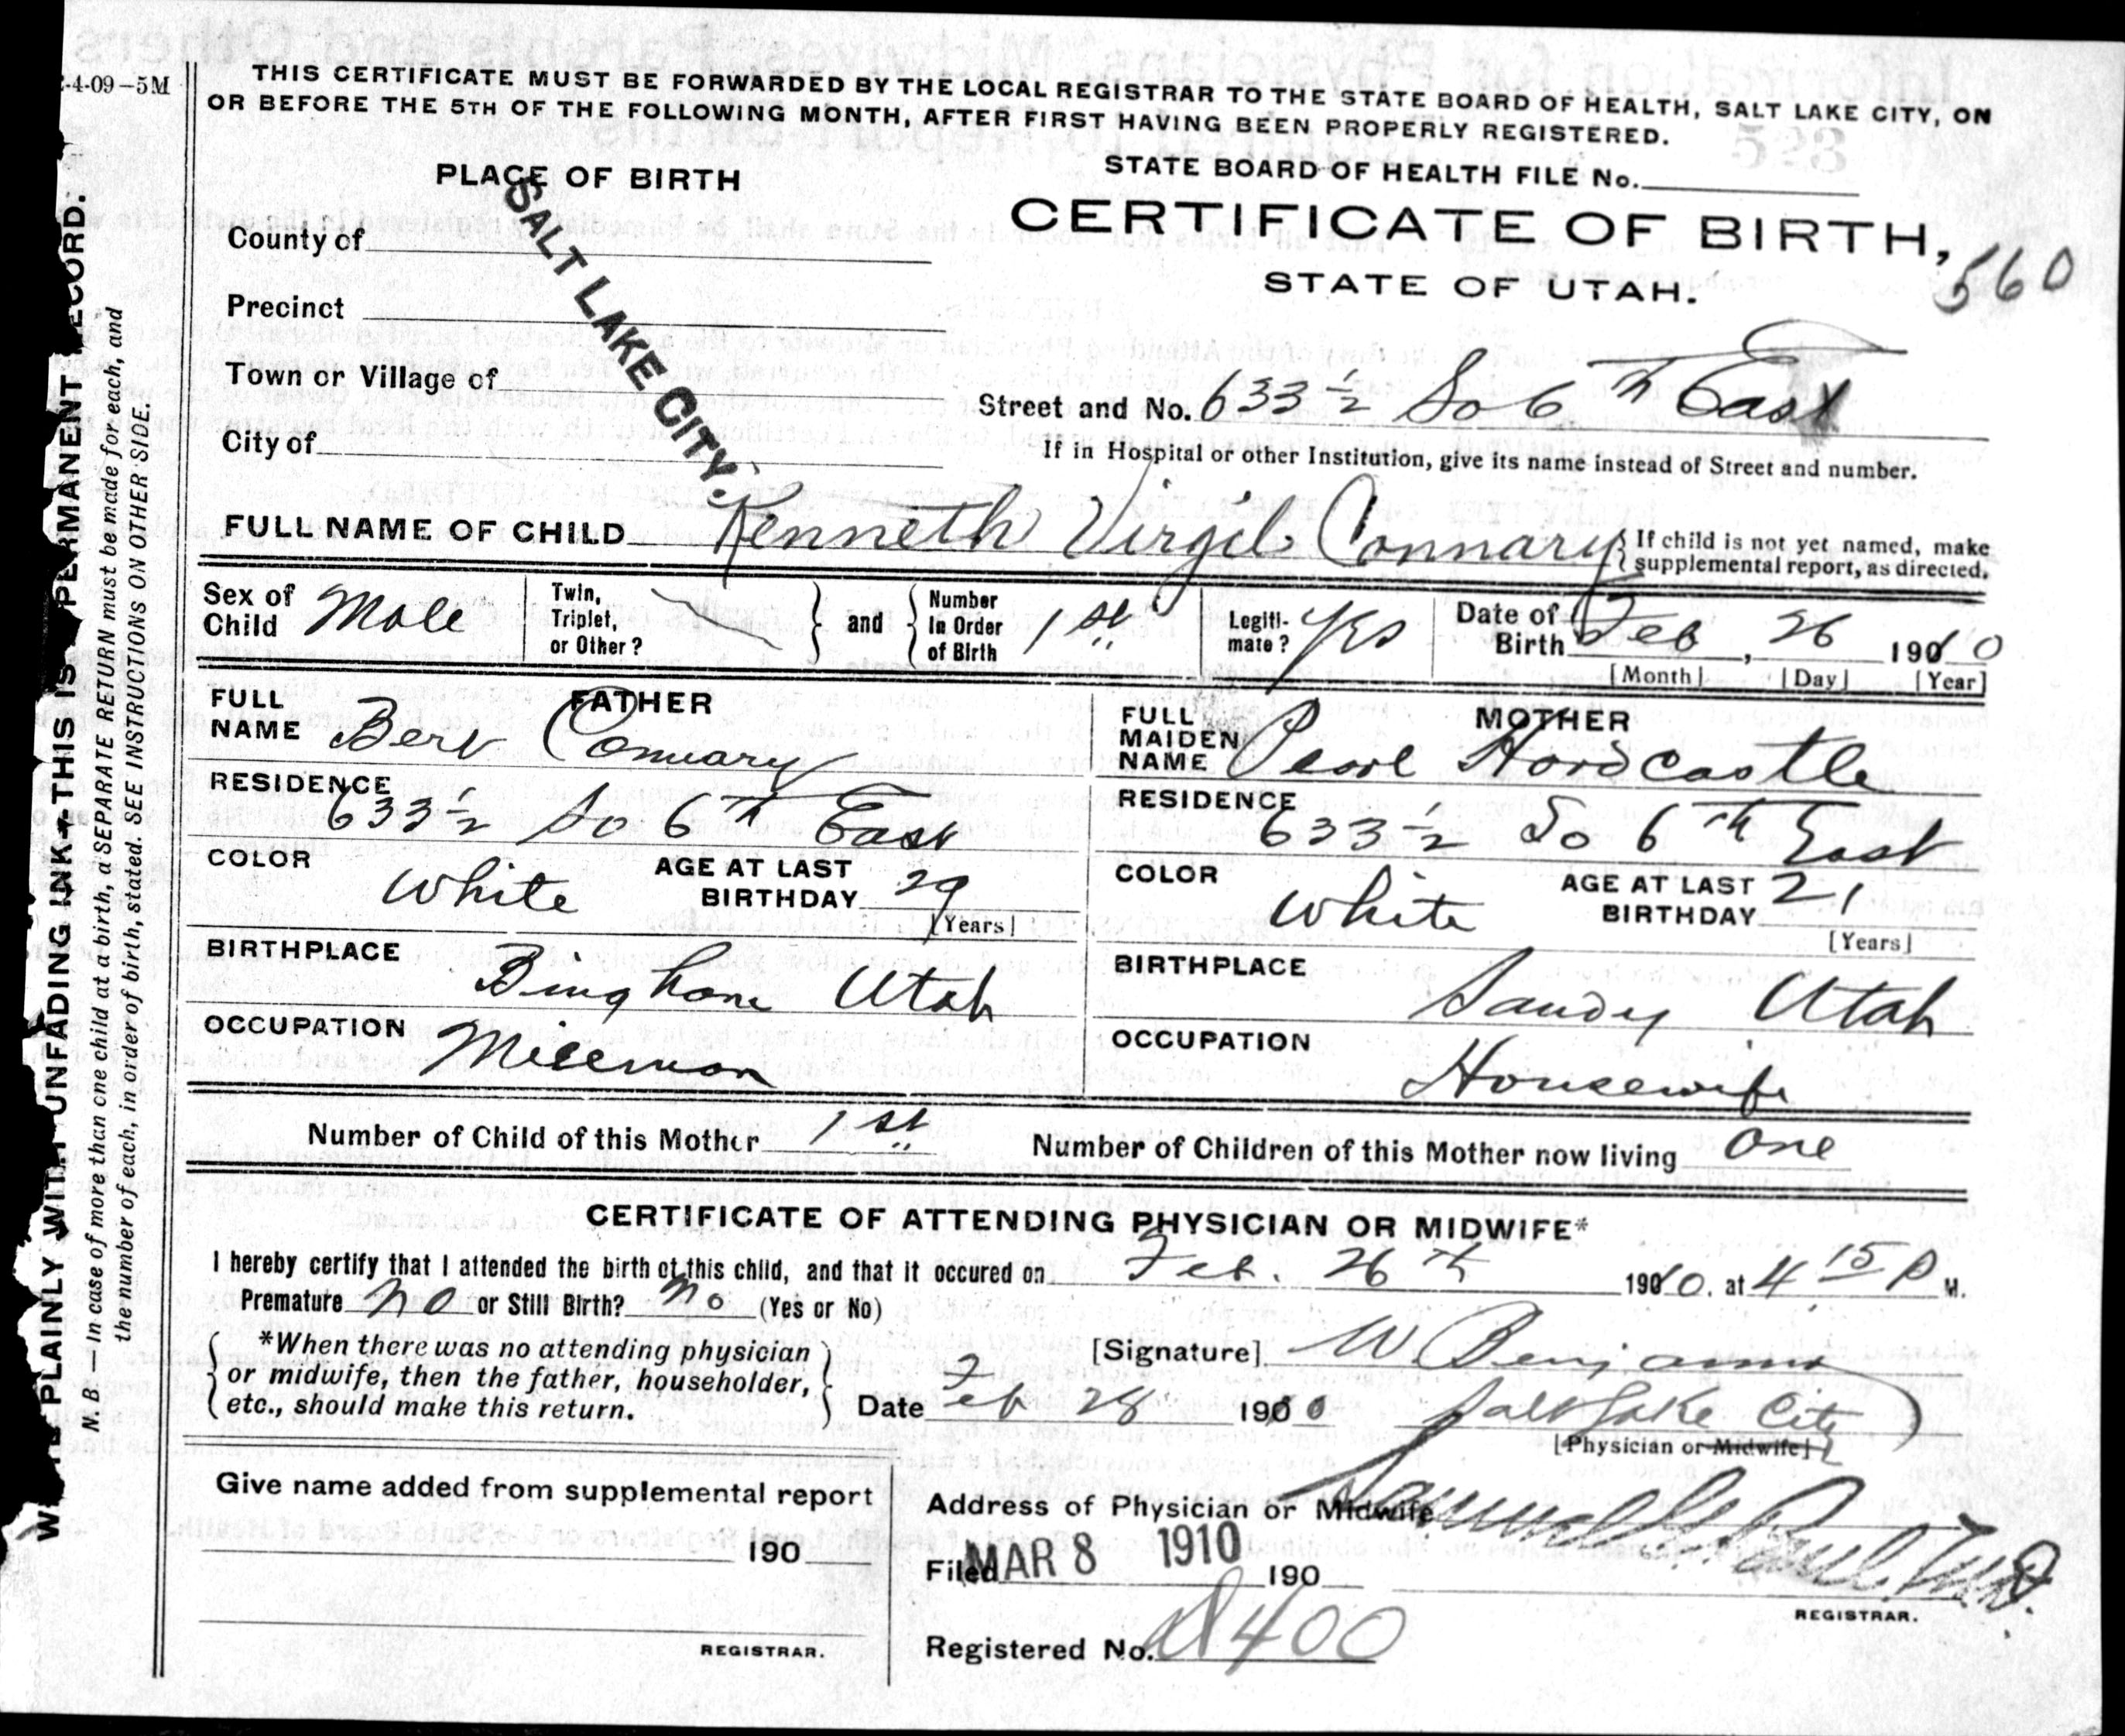 2-4-09—5M
THIS CERTIFICATE MUST BE FORWARDED BY THE LOCAL REGISTRAR TO THE STATE BOARD OF HEALTH, SALT LAKE CITY, ON
OR BEFORE THE 5TH OF THE FOLLOWING MONTH, AFTER FIRST HAVING BEEN PROPERLY REGISTERED.
PLACE OF BIRTH
STATE BOARD OF HEALTH FILE No.
CERTIFICATE OF BIRTH,
STATE OF UTAH.
560
County of
Precinct
Town or Village of
City of
SALT LAKE CITY.
Street and No. 633 1/2 So 6th East
If in Hospital or other Institution, give its name instead of Street and number.
FULL NAME OF CHILD Kenneth Virgil Connary
If child is not yet named, make
supplemental report, as directed.
Sex of Child Male
Twin, Triplet, or Other?
and
Number In Order of Birth 1st
Legiti-mate? Yes
Date of Birth Feb, 26 1910
[Month] [Day] [Year]
FATHER
FULL NAME Bert Connary
RESIDENCE
633 1/2 So 6th East
COLOR White
AGE AT LAST BIRTHDAY 29
[Years]
BIRTHPLACE
Bingham Utah
OCCUPATION
Millman
MOTHER
FULL MAIDEN NAME Pearl Hardcastle
RESIDENCE
633 1/2 So 6th East
COLOR White
AGE AT LAST BIRTHDAY 21
[Years]
BIRTHPLACE
Sandy Utah
OCCUPATION
Housewife
Number of Child of this Mother 1st
Number of Children of this Mother now living One
CERTIFICATE OF ATTENDING PHYSICIAN OR MIDWIFE*
I hereby certify that I attended the birth of this child, and that it occured on Feb. 26th 1910. at 4 15 P M.
Premature no or Still Birth? no (Yes or No)
*When there was no attending physician
or midwife, then the father, householder,
etc., should make this return.
[Signature] W. Benjamin
Date Feb 28 1910
Salt Lake City
[Physician or Midwife]
Give name added from supplemental report
190
REGISTRAR.
Address of Physician or Midwife
Filed MAR 8 1910 190
Samuel G. Paul, M.D.
REGISTRAR.
Registered No. 400
WRITE PLAINLY WITH UNFADING INK—THIS IS A PERMANENT RECORD.
N. B. — In case of more than one child at a birth, a SEPARATE RETURN must be made for each, and
the number of each, in order of birth, stated. SEE INSTRUCTIONS ON OTHER SIDE.